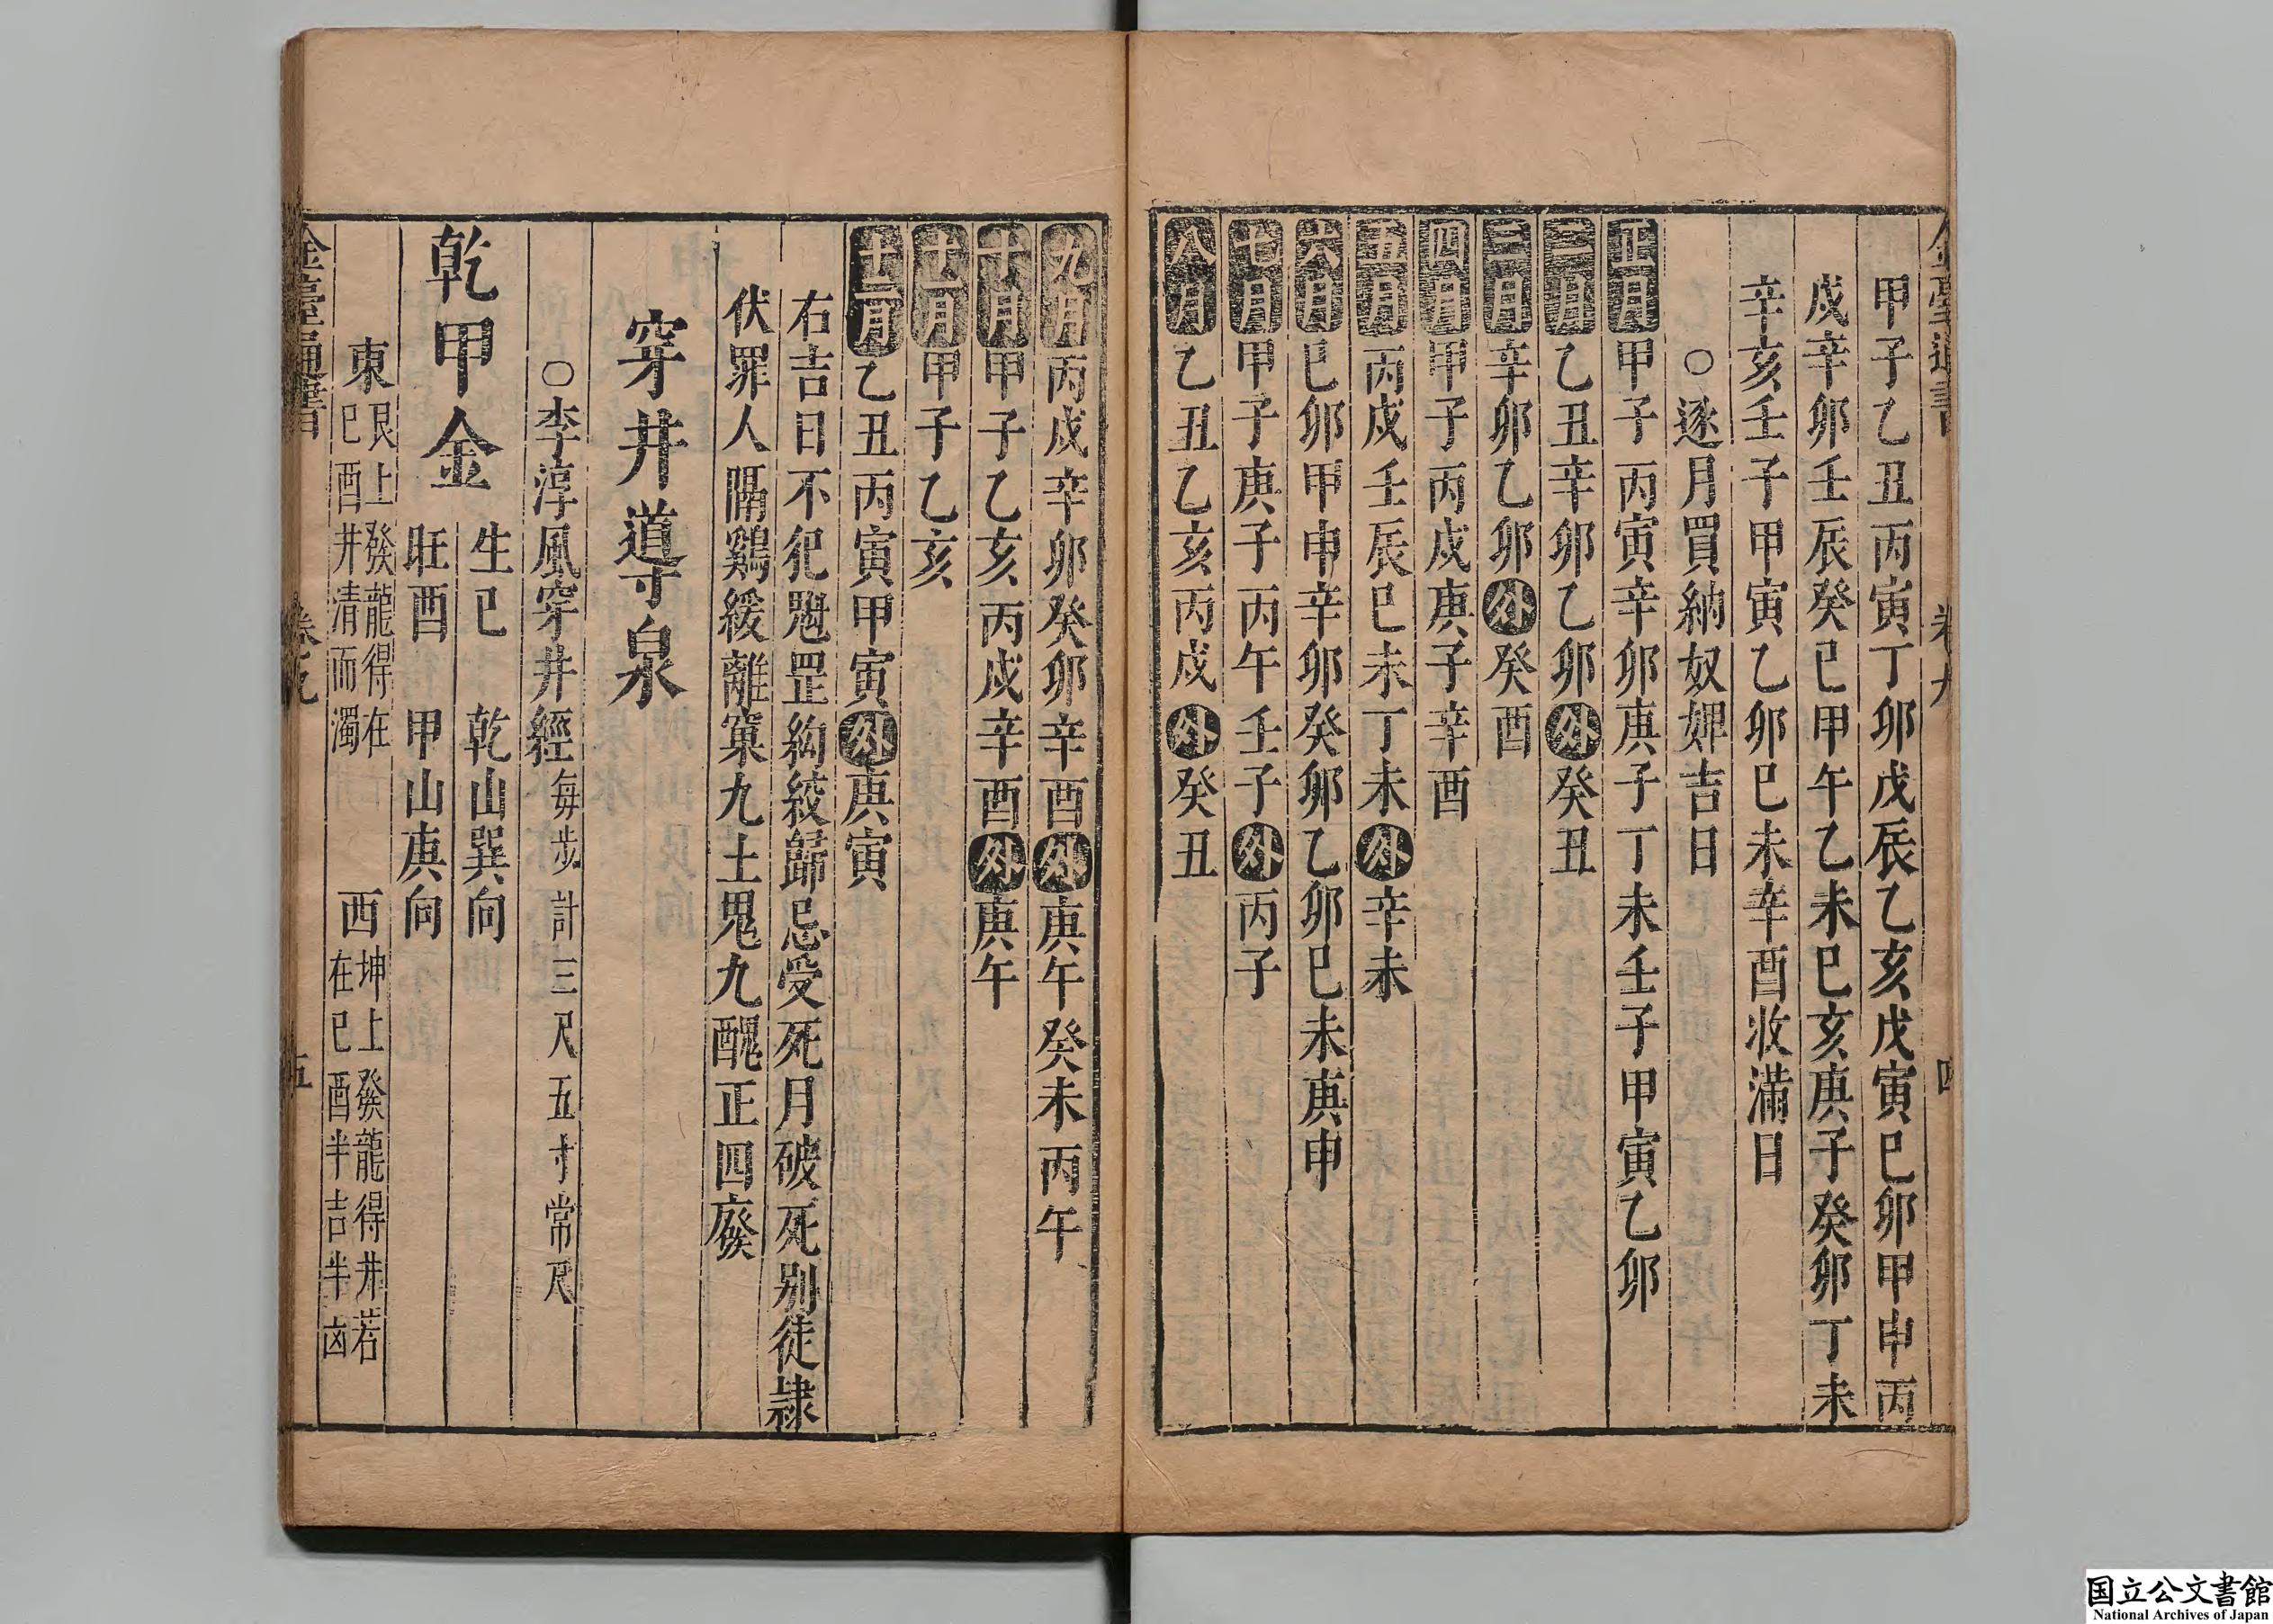 甲子乙丑丙寅丁卯戊辰乙亥戊寅巳卯甲申丙
戌辛卯壬辰癸巳甲午乙未巳亥庚子癸卯丁未
辛亥壬子甲寅乙卯巳未辛酉收滿日
○逐月買納奴婢吉日
正月甲子丙寅辛卯庚子丁未壬子甲寅乙卯
二月乙丑辛卯乙卯外癸丑
三月辛卯乙卯外癸酉
四月甲子丙戌庚子辛酉
五月丙戌壬辰巳未丁未外辛未
六月巳卯甲申辛卯癸卯乙卯巳未庚申
七月甲子庚子丙午壬子外丙子
八月乙丑乙亥丙戌外癸丑
九月丙戌辛卯癸卯辛酉外庚午癸未丙午
十月甲子乙亥丙戌辛酉外庚午
十一月甲子乙亥
十二月乙丑丙寅甲寅外庚寅
右吉日不犯魁罡絇絞歸忌受死月破死别徒隷
伏罪人隔鷄緩離窠九土鬼九醜正四廢
穿井導泉
○李淳風穿井經每步計三尺五寸常尺
乾甲金
生巳　乾山巽向
旺酉　甲山庚向
東艮上發龍得在
巳酉井清而濁
西坤上發龍得井若
在巳酉半吉半凶
金臺通書　卷九　四
金臺通書　卷九　五
国立公文書館
National Archives of Japan